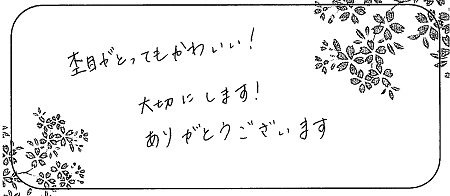 杢目がとってもかわいい！
大切にします！
ありがとうございます